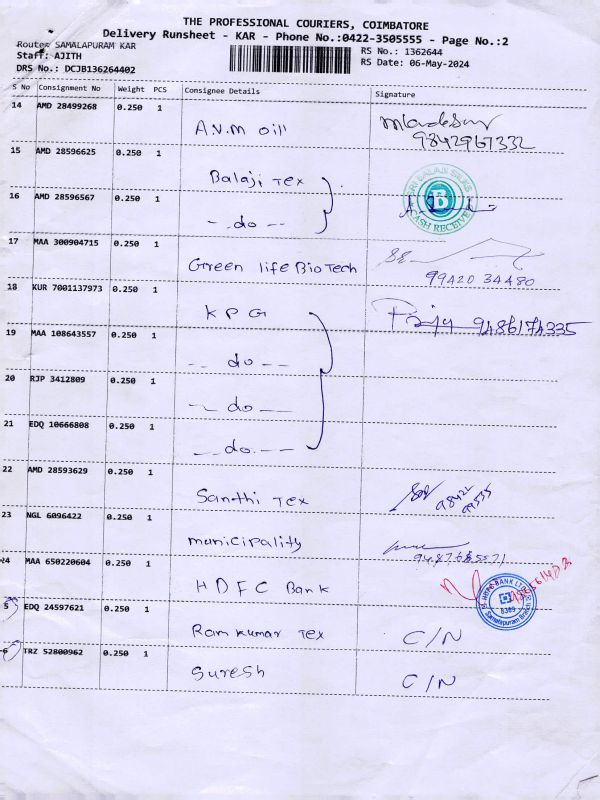 THE PROFESSIONAL COURIERS, COIMBATORE
Delivery Runsheet - KAR - Phone No.:0422-3505555 - Page No.:2
Route: SAMALAPURAM KAR
Staff: AJITH
DRS No.: DCJB136264402
RS No.: 1362644
RS Date: 06-May-2024
S No Consignment No Weight PCS Consignee Details Signature
14 AMD 28499268 0.250 1
A.V.M oil
9842967332
15 AMD 28596625 0.250 1
Balaji Tex
16 AMD 28596567 0.250 1
- do --
SRI BALAJI SILKS
B
CASH RECEIVED
17 MAA 300904715 0.250 1
Green life BioTech
99420 34480
18 KUR 7001137973 0.250 1
K P G
9486174335
19 MAA 108643557 0.250 1
-- do --
20 RJP 3412809 0.250 1
-- do --
21 EDQ 10666808 0.250 1
-- do. --
22 AMD 28593629 0.250 1
Santhi Tex
23 NGL 6096422 0.250 1
municipality
24 MAA 650220604 0.250 1
HDFC Bank
HDFC BANK LTD
8389
Samalapuram Branch
5 EDQ 24597621 0.250 1
Ram kumar Tex
C/N
6 TRZ 52800962 0.250 1
Suresh
C/N